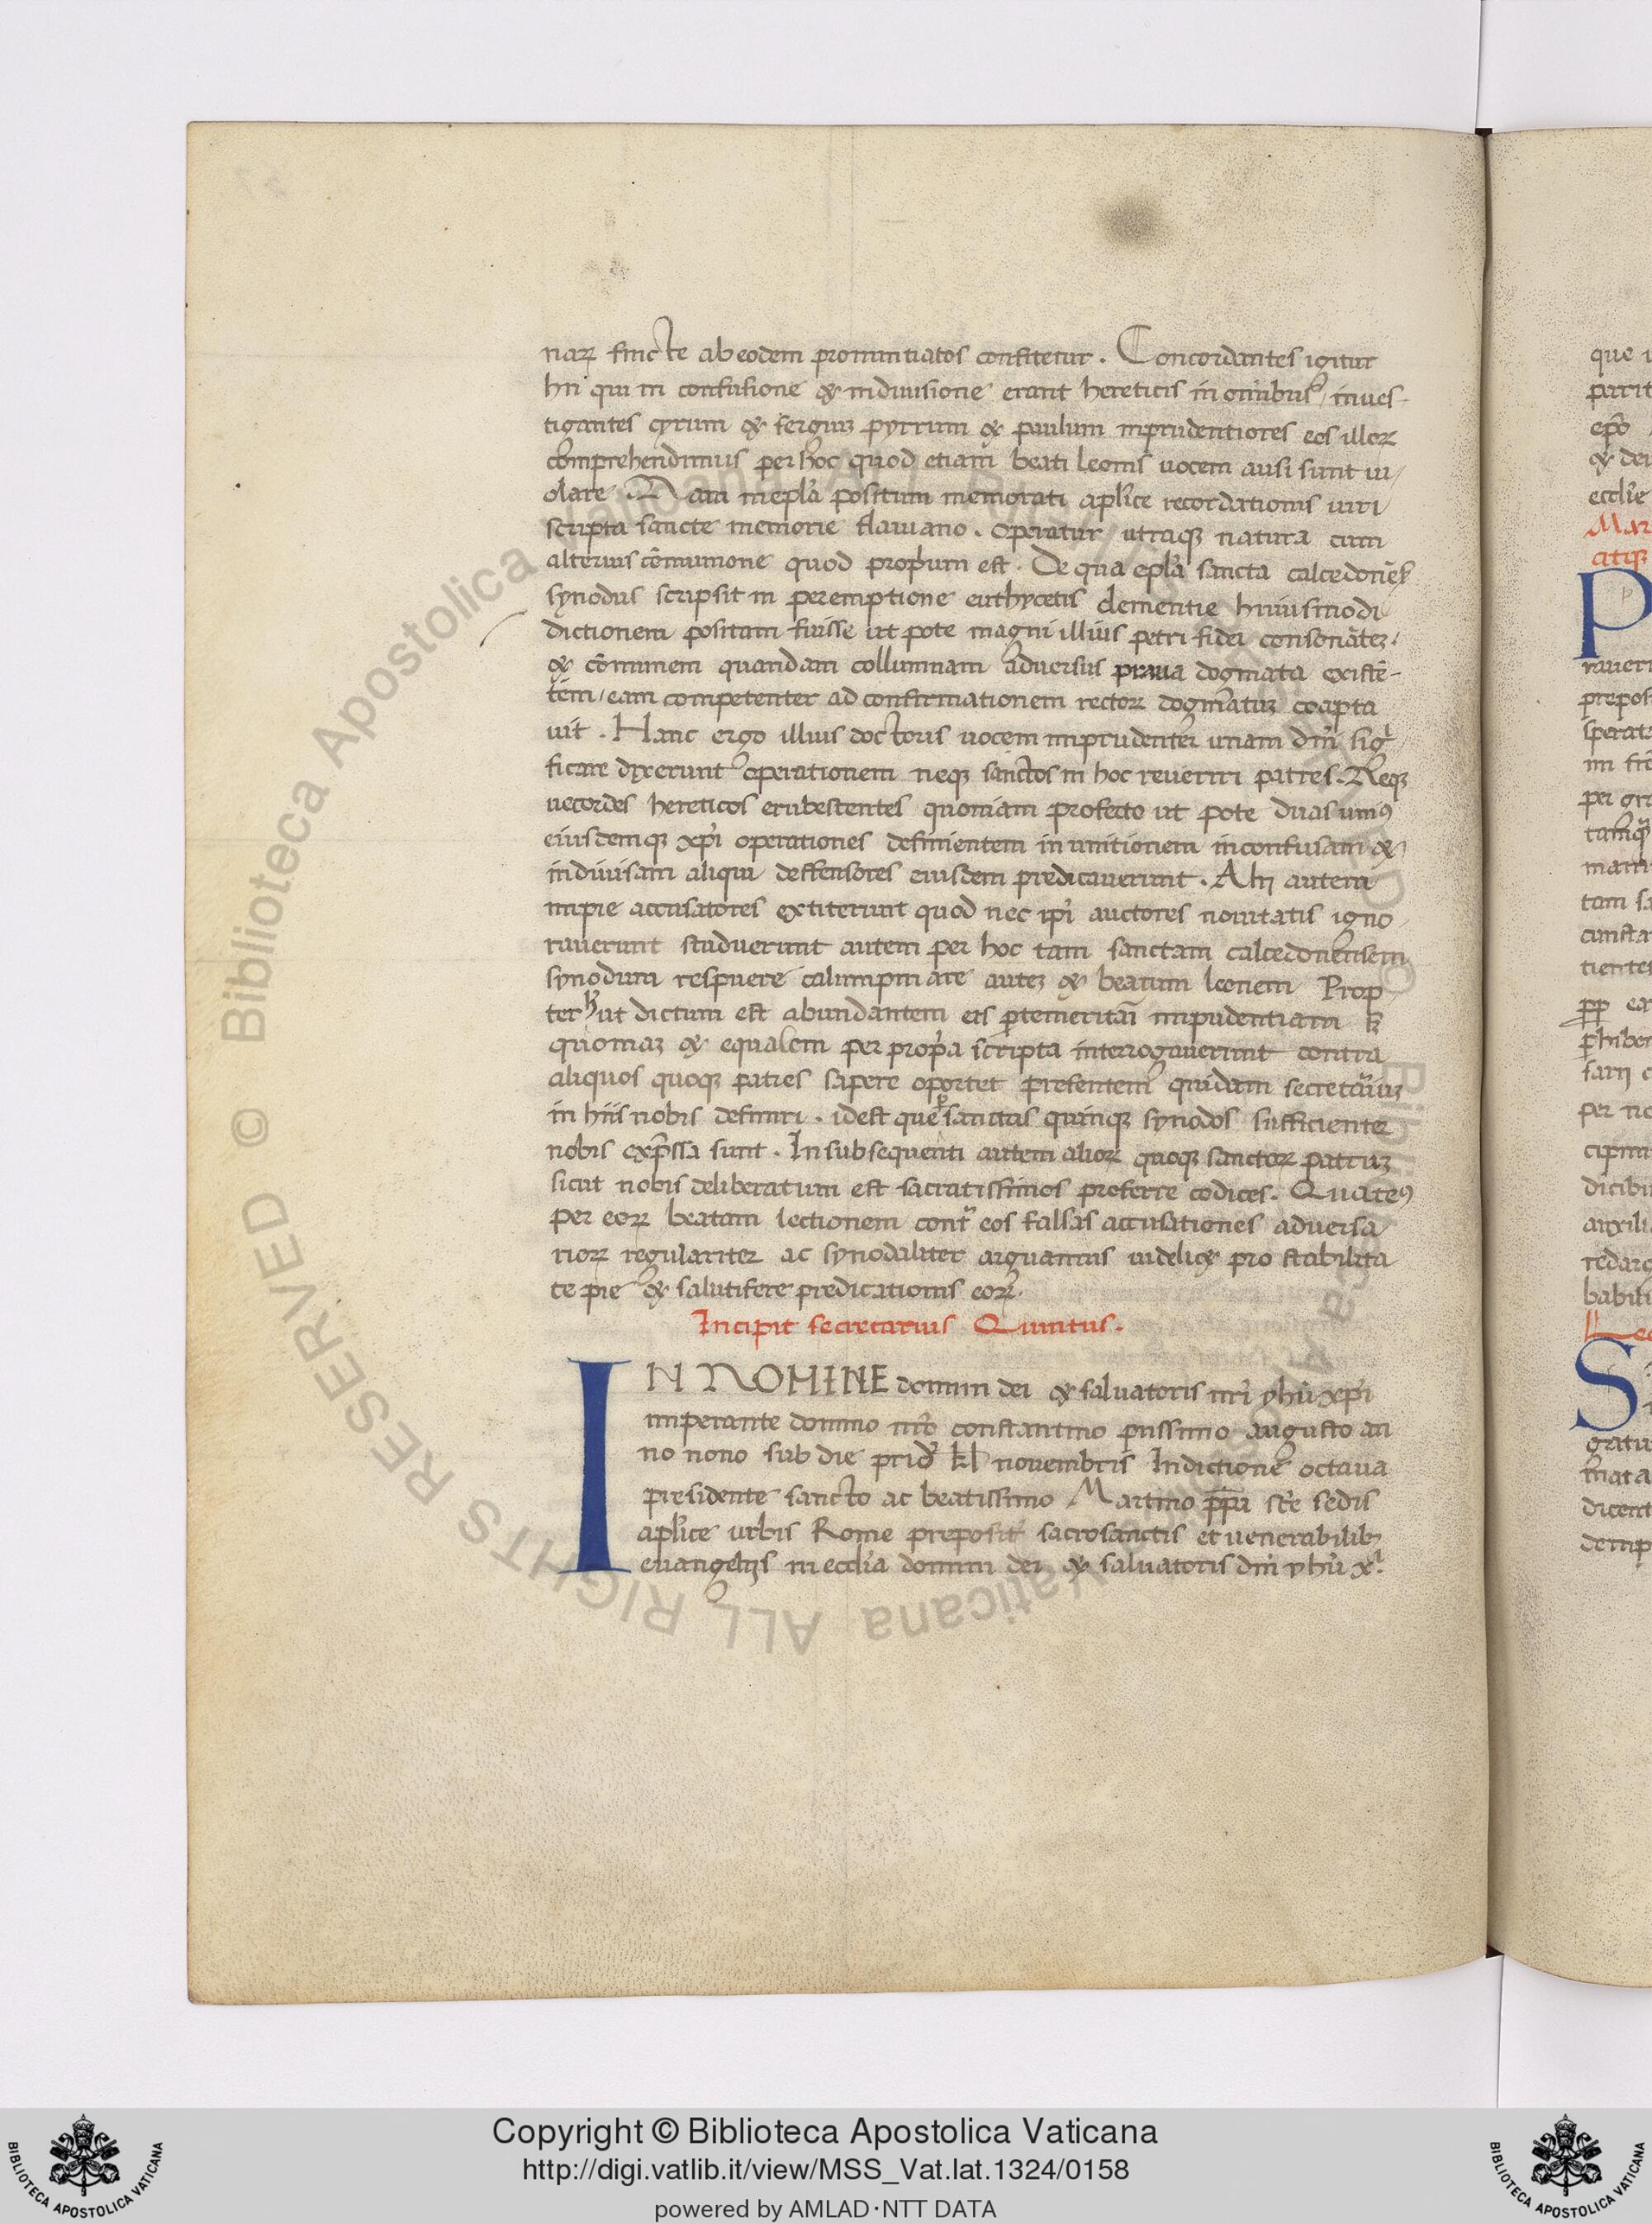 narꝝ sincte ab eodem pronuntiatos confitetur . Concordantes igitur
hii qui in confusione & indiuisione erant hereticis in omībus / inues-
tigantes cyrum & serguꝫ pyrrum & paulum inprudentiores eos illoꝝ
comprehendimus per hoc quod etiam beati leonis uocem ausi sunt ui/
olare Nam in epl'a positum memorati apl'ice recordationis uiri
scripta sancte memorie flauiano . operatur utraqꝫ natura cum
alterius cōmunione quod propium est . De qua epl'a sancta calcedonēs'
synodus scripsit in peremptione euthycetis clementie huiusmodi
dictionem positam fuisse ut pote magni illius petri fidei consonāteꝫ .
& cōmunem quandam collumnam aduersus praua dogmata existē-
tem / eam competenter ad confirmationem rectoꝝ dogmatuꝫ coapta
uit . Hanc ergo illius doctoris uocem imprudenter unam dn̄i sigⁱ
ficare dyxerunt operationem neqꝫ sanctos in hoc reueriri patres . Neqꝫ
uecordes hereticos erubescentes quoniam profecto ut pote duas uniꝰ
eiusdemqꝫ xp̄i operationes definientem in unitionem inconfusam &
indiuisam aliqui deffensores eiusdem predicauerunt . Alij autem
impie accusatores extiterunt quod nec ip̄i auctores nouitatis igno
rauerunt studuerunt autem per hoc tam sanctam calcedonensem
synodum respuere calumpniare auteꝫ & beatum leonem Prop
ter h ut dictum est abundantem eis ꝑtemeritāī impudentiam
quoniaꝫ & equalem per prop'a scripta interrogauerunt contra
aliquos quoqꝫ patres sapere oportet presentem quidam secretāuiꝫ
in hiis nobis definiri . idest que sanctas quinqꝫ synodos sufficienteꝛ
nobis exp̄ssa sunt . In subsequenti autem alioꝝ quoqꝫ sanctoꝝ patruꝫ
sicut nobis deliberatum est sacratissimos proferre codices . Quateꝰ
per eoꝝ beatam lectionem contᵃ eos falsas accusationes aduersa
rioꝝ regulariteꝛ ac synodaliter arguamus uidelicꝫ pro stabilita
te pie & salutifere predicationis eoꝝ .
Incipit secretarius Quintus .
IN NOMINE domini dei & saluatoris nr̄i yhū xp̄i
imperante domino nr̄o constantino piissimo augusto an
no nono sub die prid' kl nouembris Indictione octaua
presidente sancto ac beatissimo Martino p̄pa sc̄e sedis
apl'ice urbis Rome preposit' sacrosanctis et uenerabilibꝫ
euangelijs in eccl'ia domini dei & saluatoris dn̄i yhū xⁱ .
que
parit
ep̄o
& dei
eccl'ie
Mar
P
rauer
prepos
sperat
per gr
mam
tam sa
cuncta
tientes
p̄p ex
ꝓhiber
sarij
per no
dicibu
auxili
redarg
babili
S
gratu
dicent
demp
Copyright © Biblioteca Apostolica Vaticana
http://digi.vatlib.it/view/MSS_Vat.lat.1324/0158
powered by AMLAD·NTT DATA
BIBLIOTECA APOSTOLICA VATICANA
BIBLIOTECA APOSTOLICA VATICANA
© Biblioteca Apostolica Vaticana ALL RIGHTS RESERVED